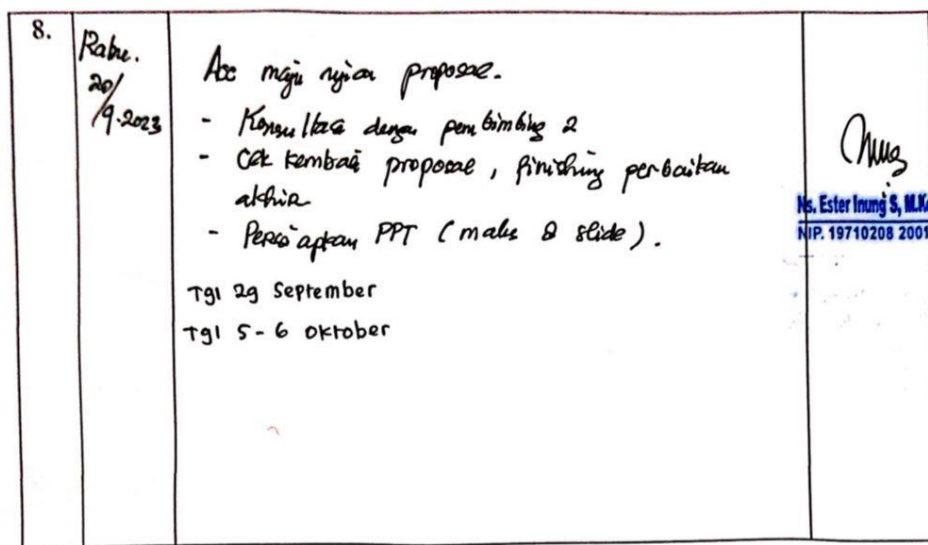 8.
Rabu.
20/
9-2023
Acc maju ujian proposal.
- Konsultasi dengan pembimbing 2
- Cek kembali proposal, finishing perbaikan
akhir
- Persiapkan PPT (maks 8 slide).
Tgl 29 September
Tgl 5-6 Oktober
Ns. Ester Inung S, M.K
NIP. 19710208 2001